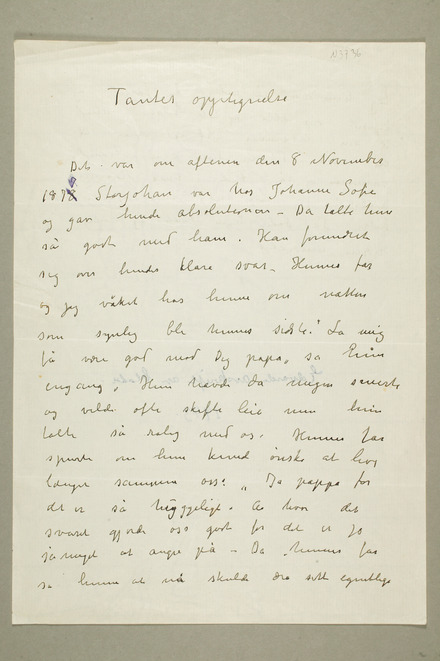 N 3736
Tantes opptegnelse
Det var om aftenen den 8 November
187 Storjohan var hos Johanne Sofie
og gav hende absolutionen – Da talte hun
så godt med ham. Han forundret
sig over hendes klare svar – Hennes far
og jeg våket hos henne om natten
som synlig ble hennes sidste. La mig
få være god med Dig papa, sa
engang, Hun havde da megen smerte
og vilde ofte skifte leie men hun
talte så rolig med os. Hennes far
spurte om hun kunde ønske at leve
længer sammen oss: „Ja pappa for
det er så hyggeligt. Å hvor det
svaret gjorde oss godt for det er jo
så meget at angre på – Da hennes far
sa henne at nå skulde dra sitt egentlige